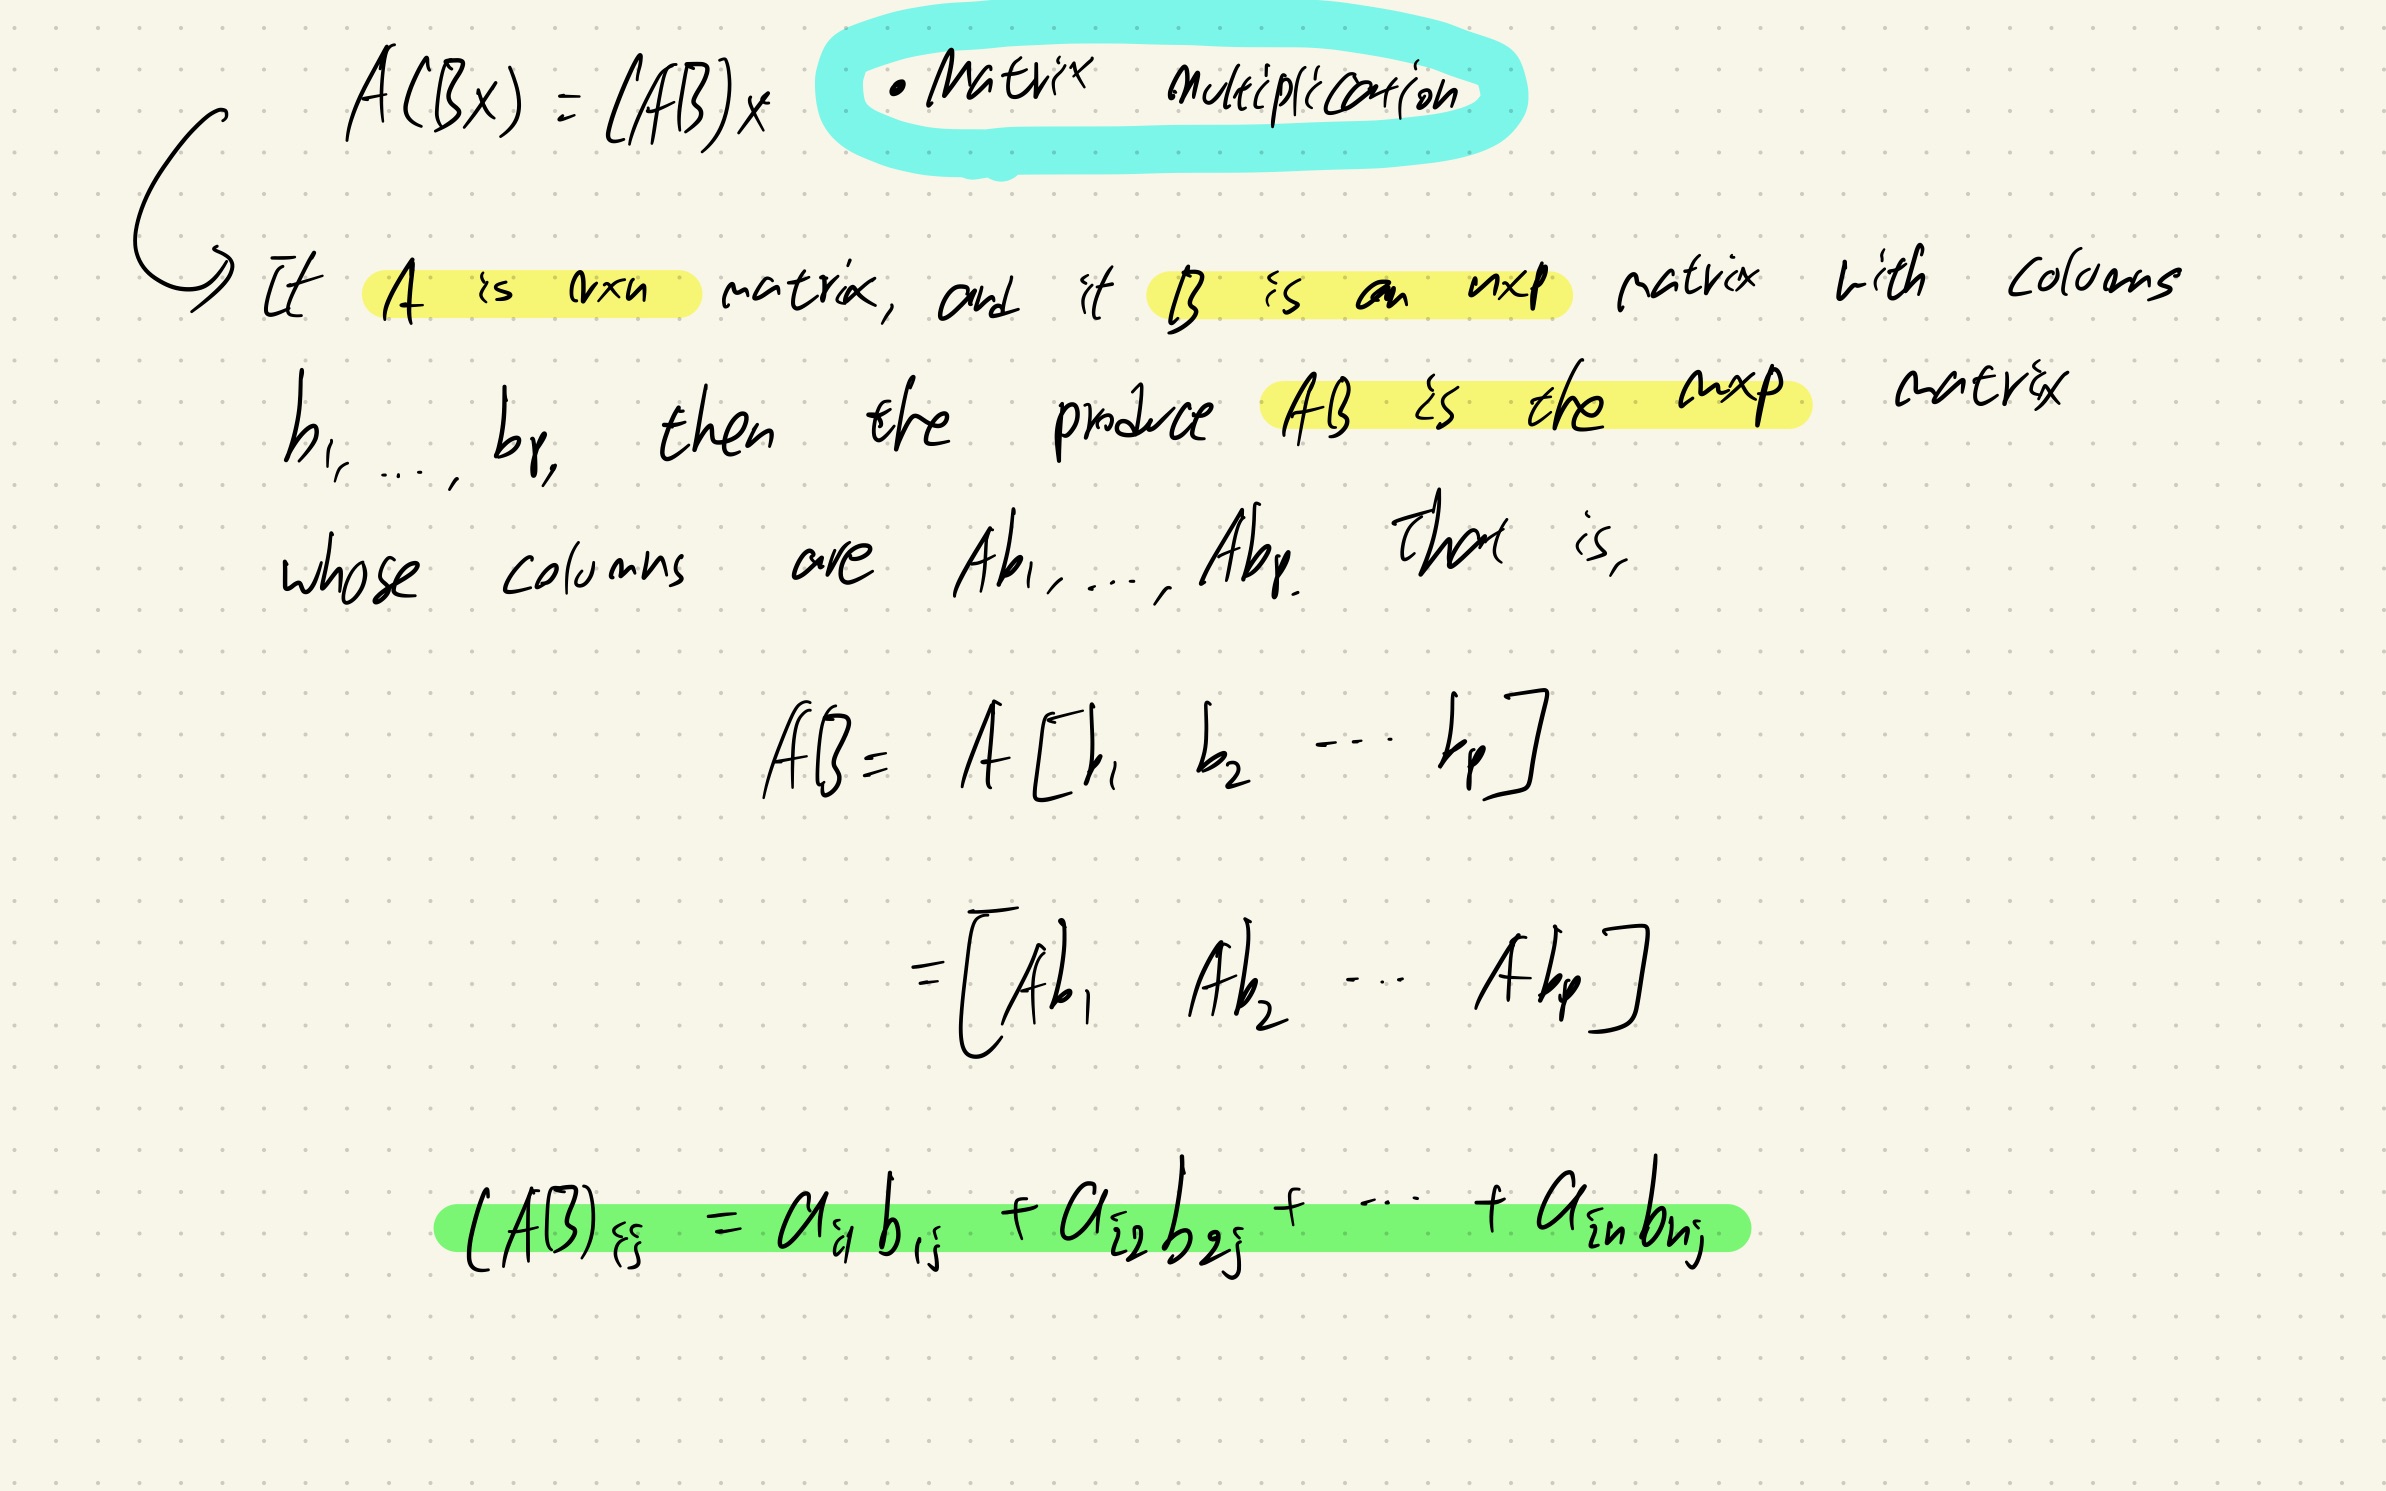 A(Bx) = (AB)x • Matrix multiplication
If A is mxn matrix, and if B is an nxp matrix with coloms
b1, ..., bp, then the produce AB is the mxp matrix
whose coloms are Ab1, ..., Abp. That is,
AB = A[b1 b2 ... bp]
= [Ab1 Ab2 ... Abp]
(AB)ij = ai1b1j + ai2b2j + ... + ainbnj